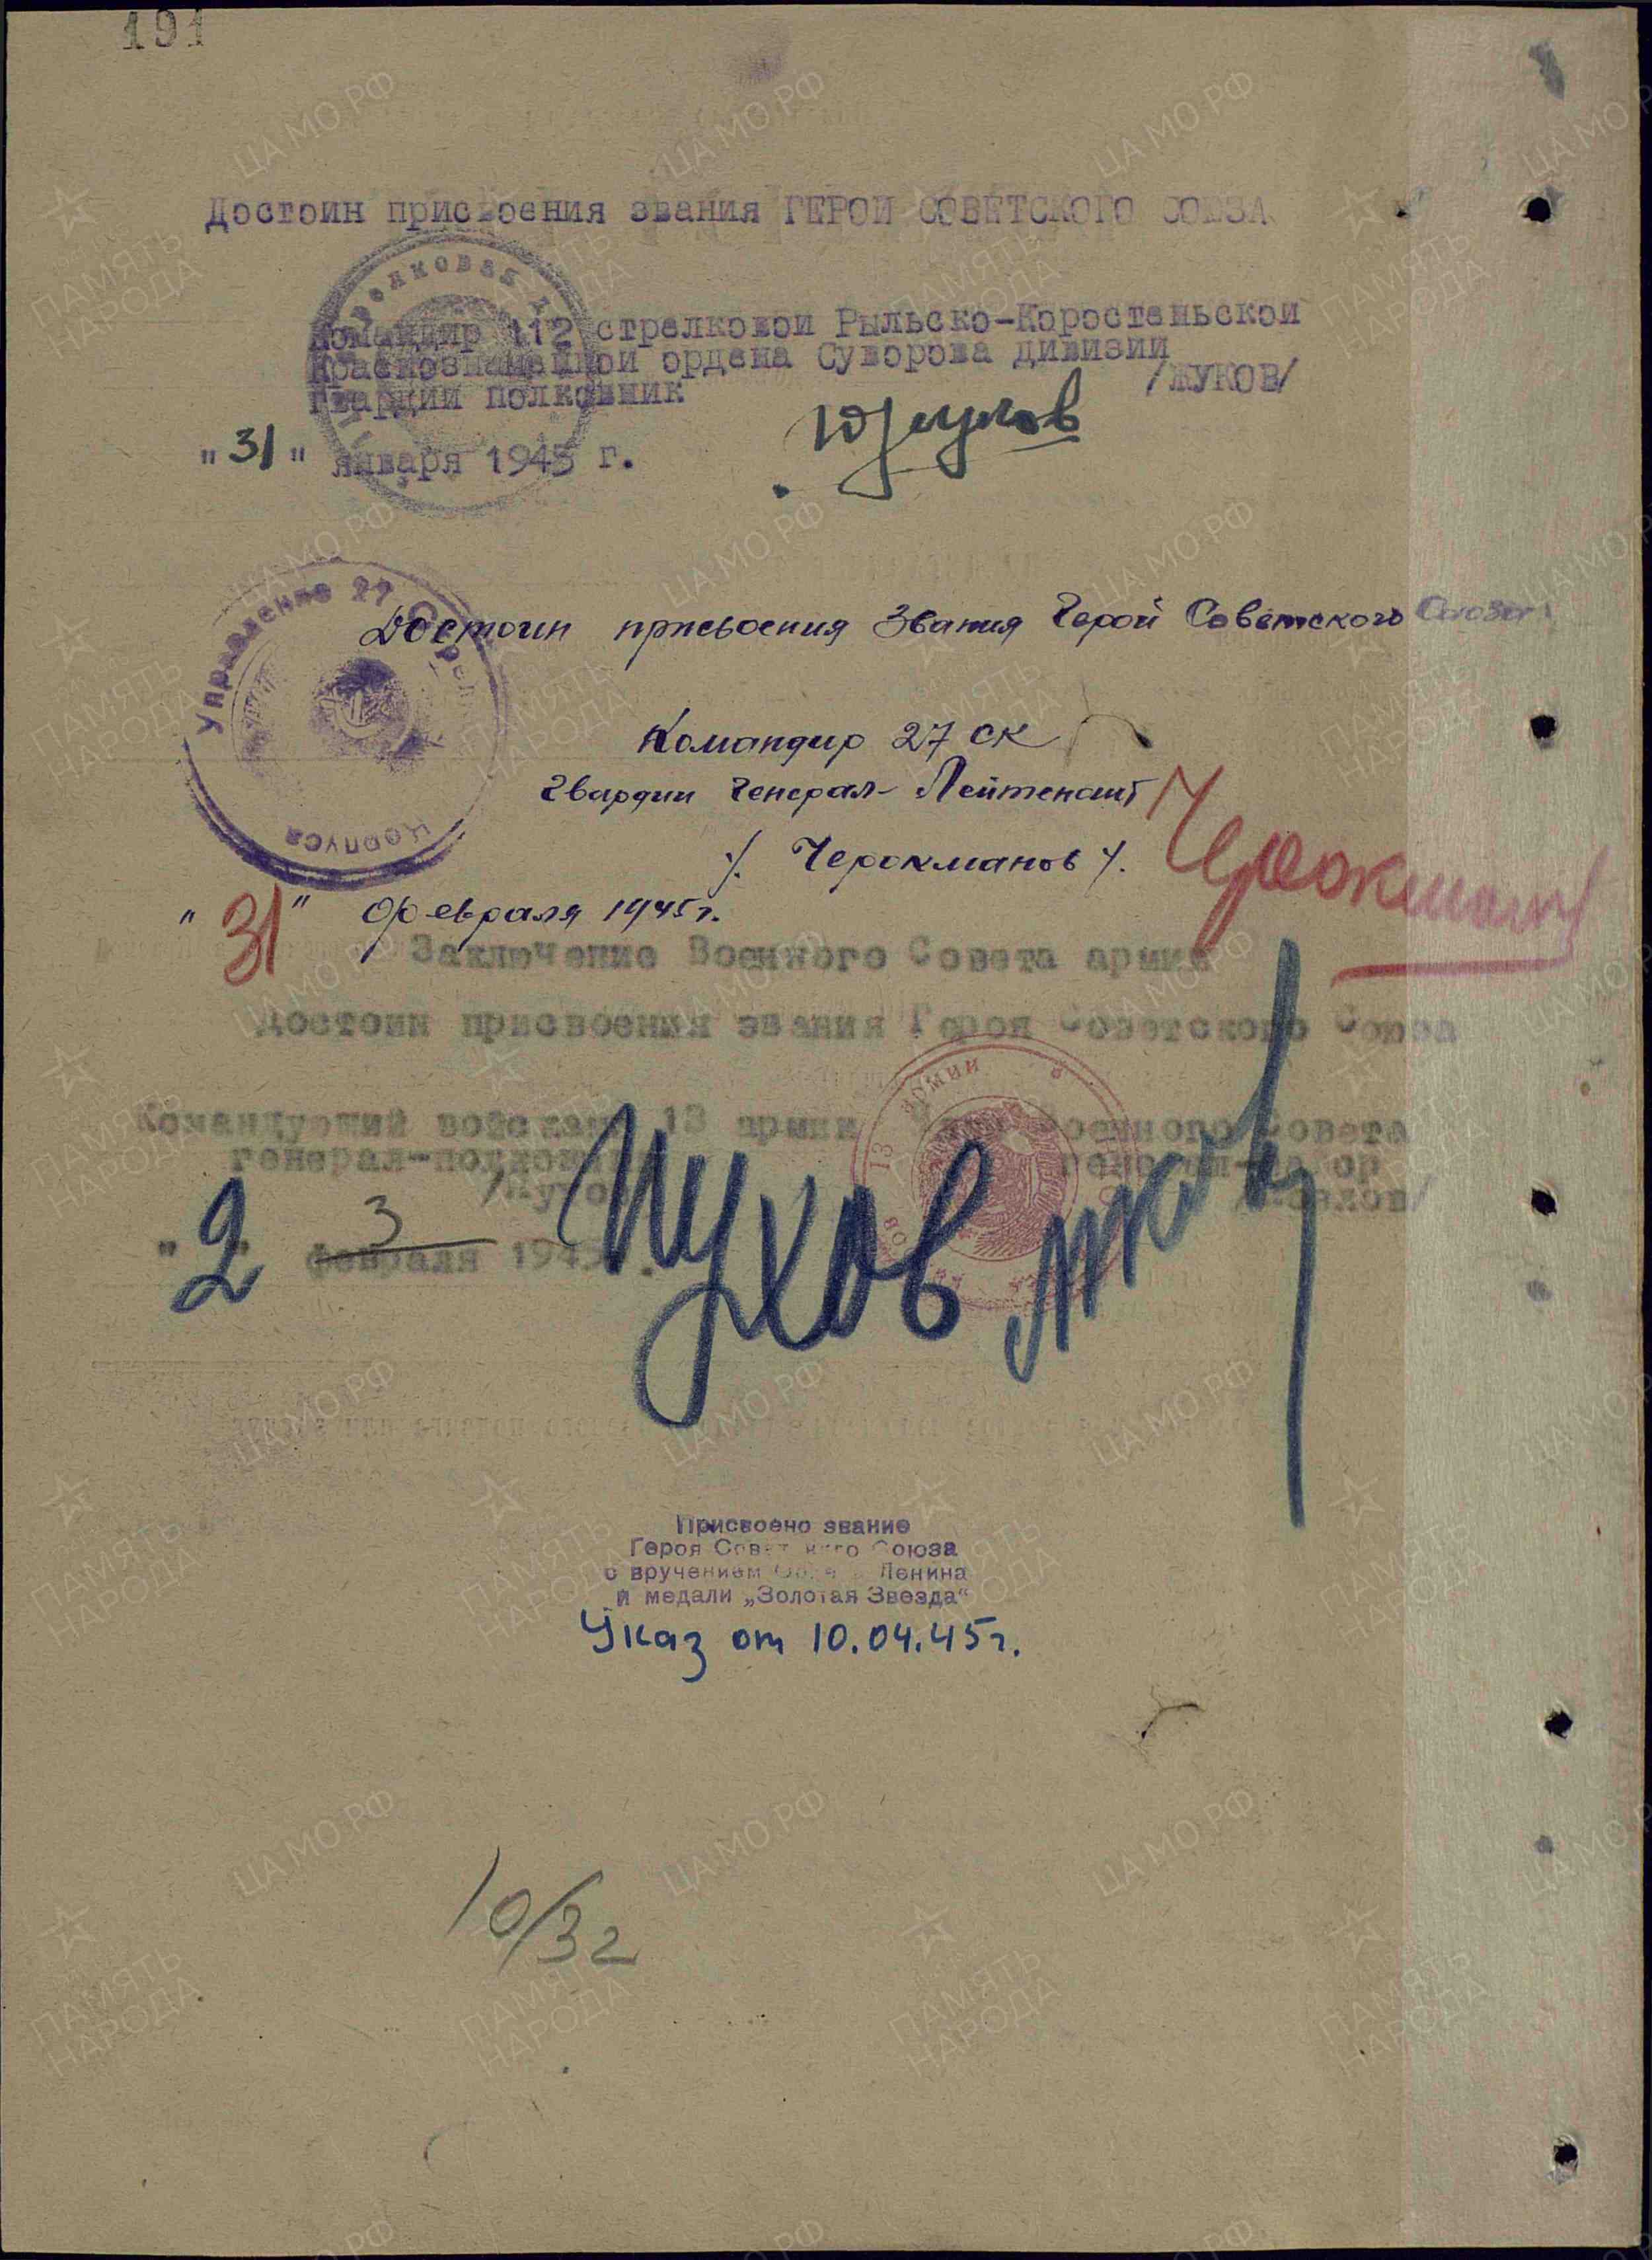 191
Достоин присвоения звания ГЕРОЙ СОВЕТСКОГО СОЮЗА
Командир 112 стрелковой Рыльско-Коростеньской
Краснознаменной ордена Суворова дивизии
гвардии полковник /ЖУКОВ/
"31" января 1945 г.
Управление 27 Стрел
Корпуса
Достоин присвоения звания Герой Советского Союза
Командир 27 СК
Гвардии Генерал-Лейтенант
/. Черокманов /.
"31" февраля 1945г.
Заключение Военного Совета армии
Достоин присвоения звания Героя Советского Союза
Командующий войсками 13 армии Член Военного Совета
генерал-полковник генерал-майор
/Пухов/ /Козлов/
Пухов
"2" 3 февраля 1945
Присвоено звание
Героя Советского Союза
с вручением Ордена Ленина
и медали „Золотая Звезда“
Указ от 10.04.45г.
10/32
ЦА МО РФ
ПАМЯТЬ НАРОДА